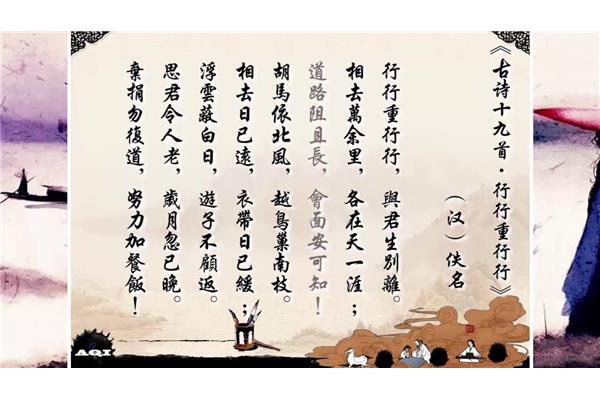 《古诗十九首·行行重行行》
（汉）佚名
行行重行行，與君生别離。
相去萬余里，各在天一涯；
道路阻且長，會面安可知！
胡馬依北風，越鳥巢南枝。
相去日已遠，衣帶日已緩；
浮雲蔽白日，遊子不顧返。
思君令人老，歲月忽已晚。
棄捐勿復道，努力加餐飯！
AQI